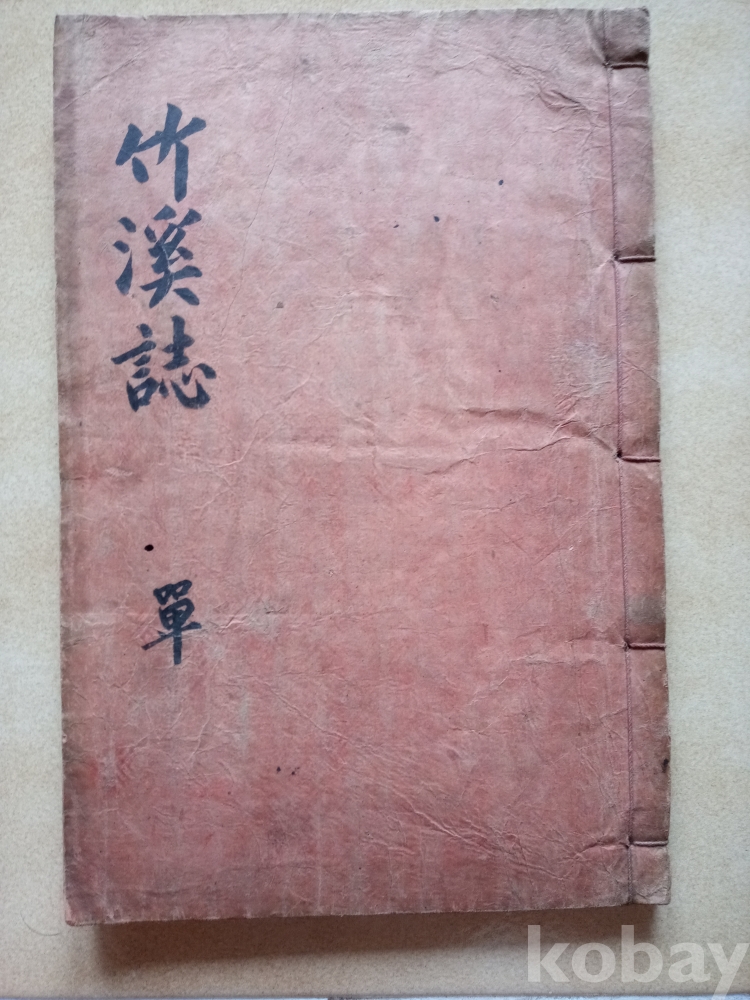 竹溪誌
單
kobay